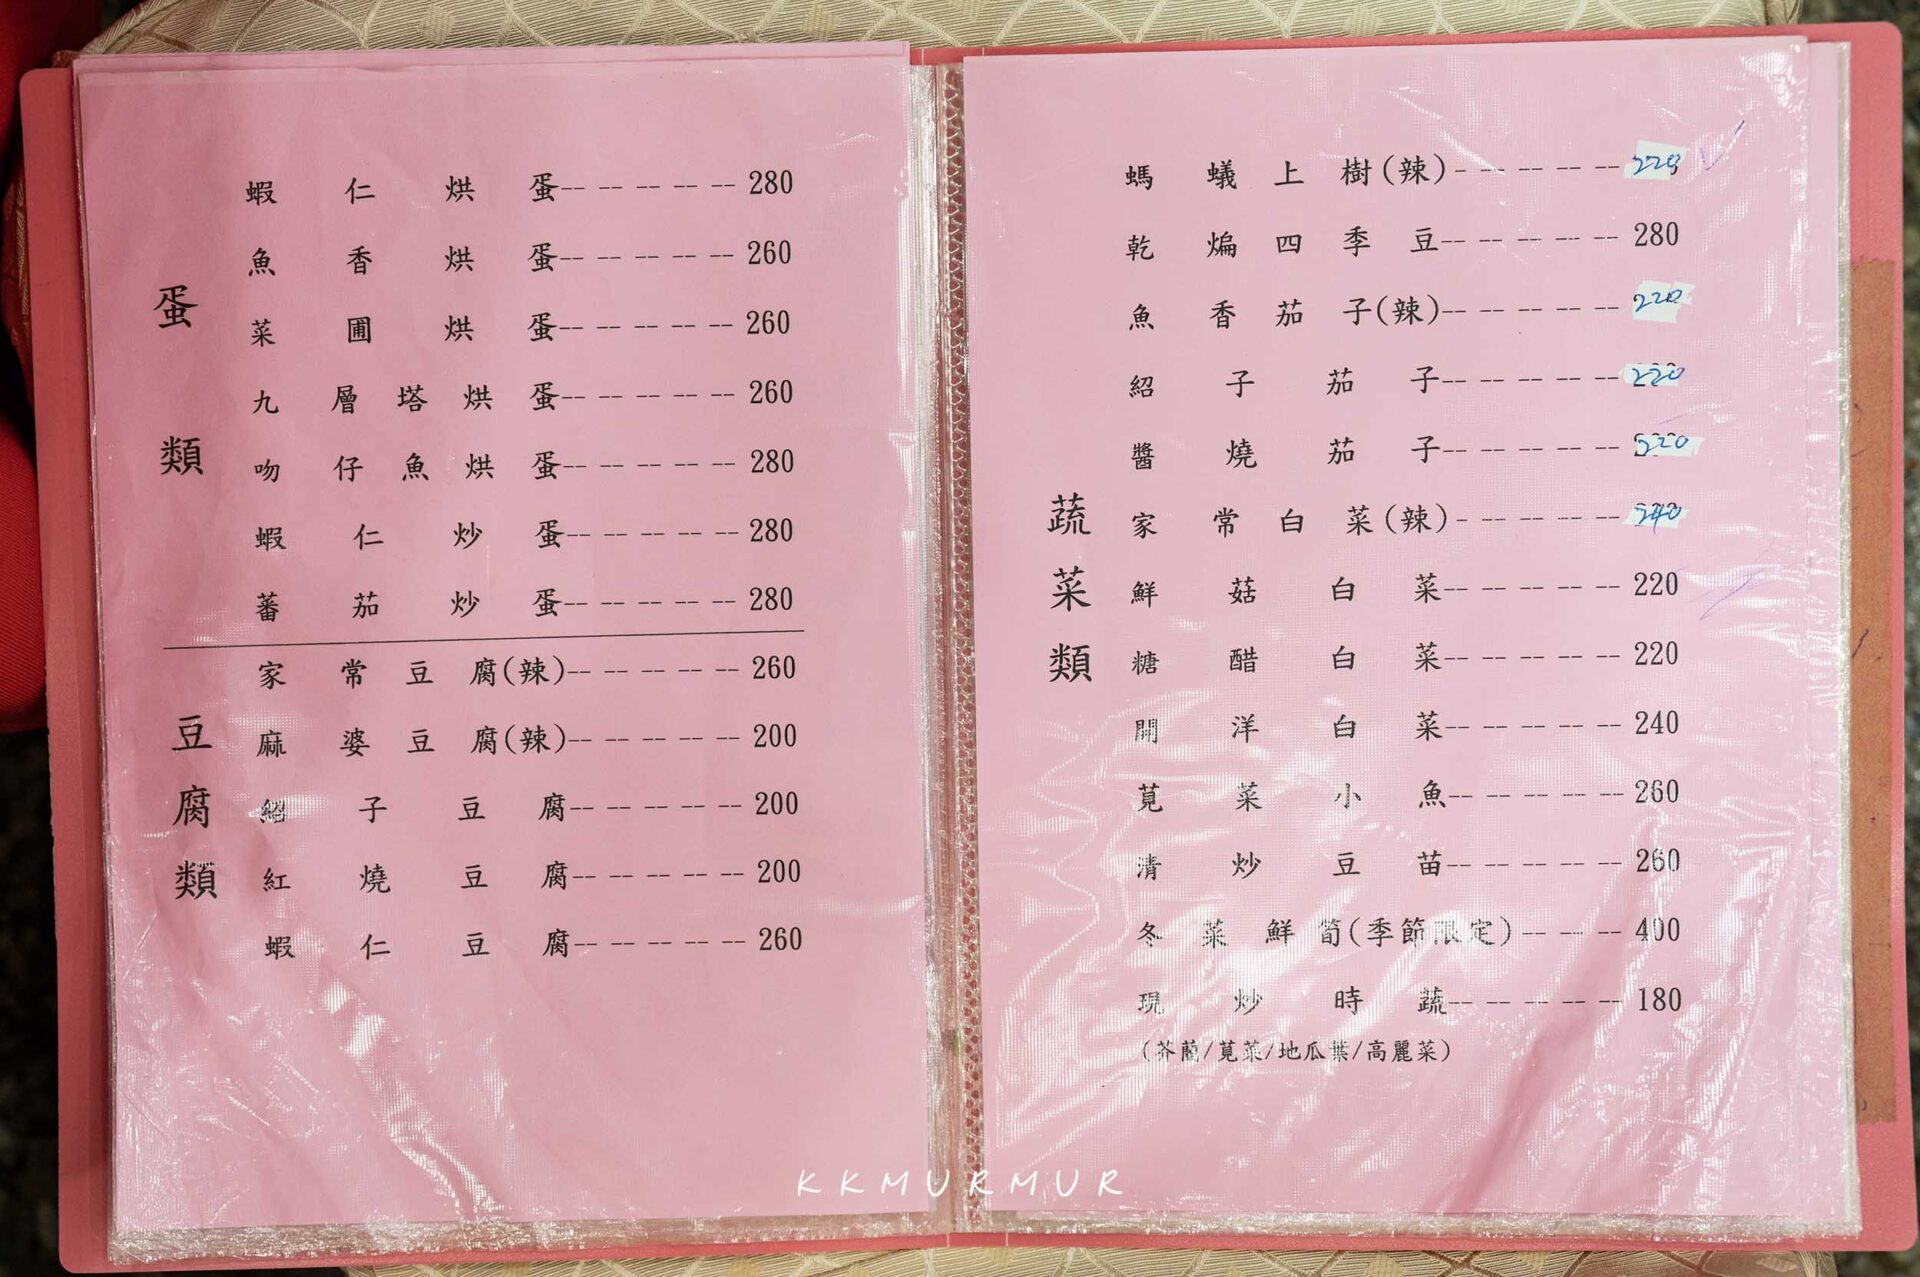 蛋類
蝦仁烘蛋-- -- -- -- -- 280
魚香烘蛋-- -- -- -- -- 260
菜圃烘蛋-- -- -- -- -- 260
九層塔烘蛋-- -- -- -- -- 260
吻仔魚烘蛋-- -- -- -- -- 280
蝦仁炒蛋-- -- -- -- -- 280
蕃茄炒蛋-- -- -- -- -- 280
豆腐類
家常豆腐(辣)-- -- -- -- -- 260
麻婆豆腐(辣)-- -- -- -- -- 200
紹子豆腐-- -- -- -- -- 200
紅燒豆腐-- -- -- -- -- 200
蝦仁豆腐-- -- -- -- -- 260
蔬菜類
螞蟻上樹(辣)- -- -- -- -- 220
乾煸四季豆-- -- -- -- -- 280
魚香茄子(辣)-- -- -- -- -- 220
紹子茄子-- -- -- -- -- 220
醬燒茄子-- -- -- -- -- 220
家常白菜(辣)- -- -- -- -- 240
鮮菇白菜-- -- -- -- -- 220
糖醋白菜-- -- -- -- -- 220
開洋白菜-- -- -- -- -- 240
莧菜小魚-- -- -- -- -- 260
清炒豆苗-- -- -- -- -- 260
冬菜鮮筍(季節限定)-- -- -- 400
現炒時蔬-- -- -- -- -- 180
(芥蘭/莧菜/地瓜葉/高麗菜)
KKMURMUR